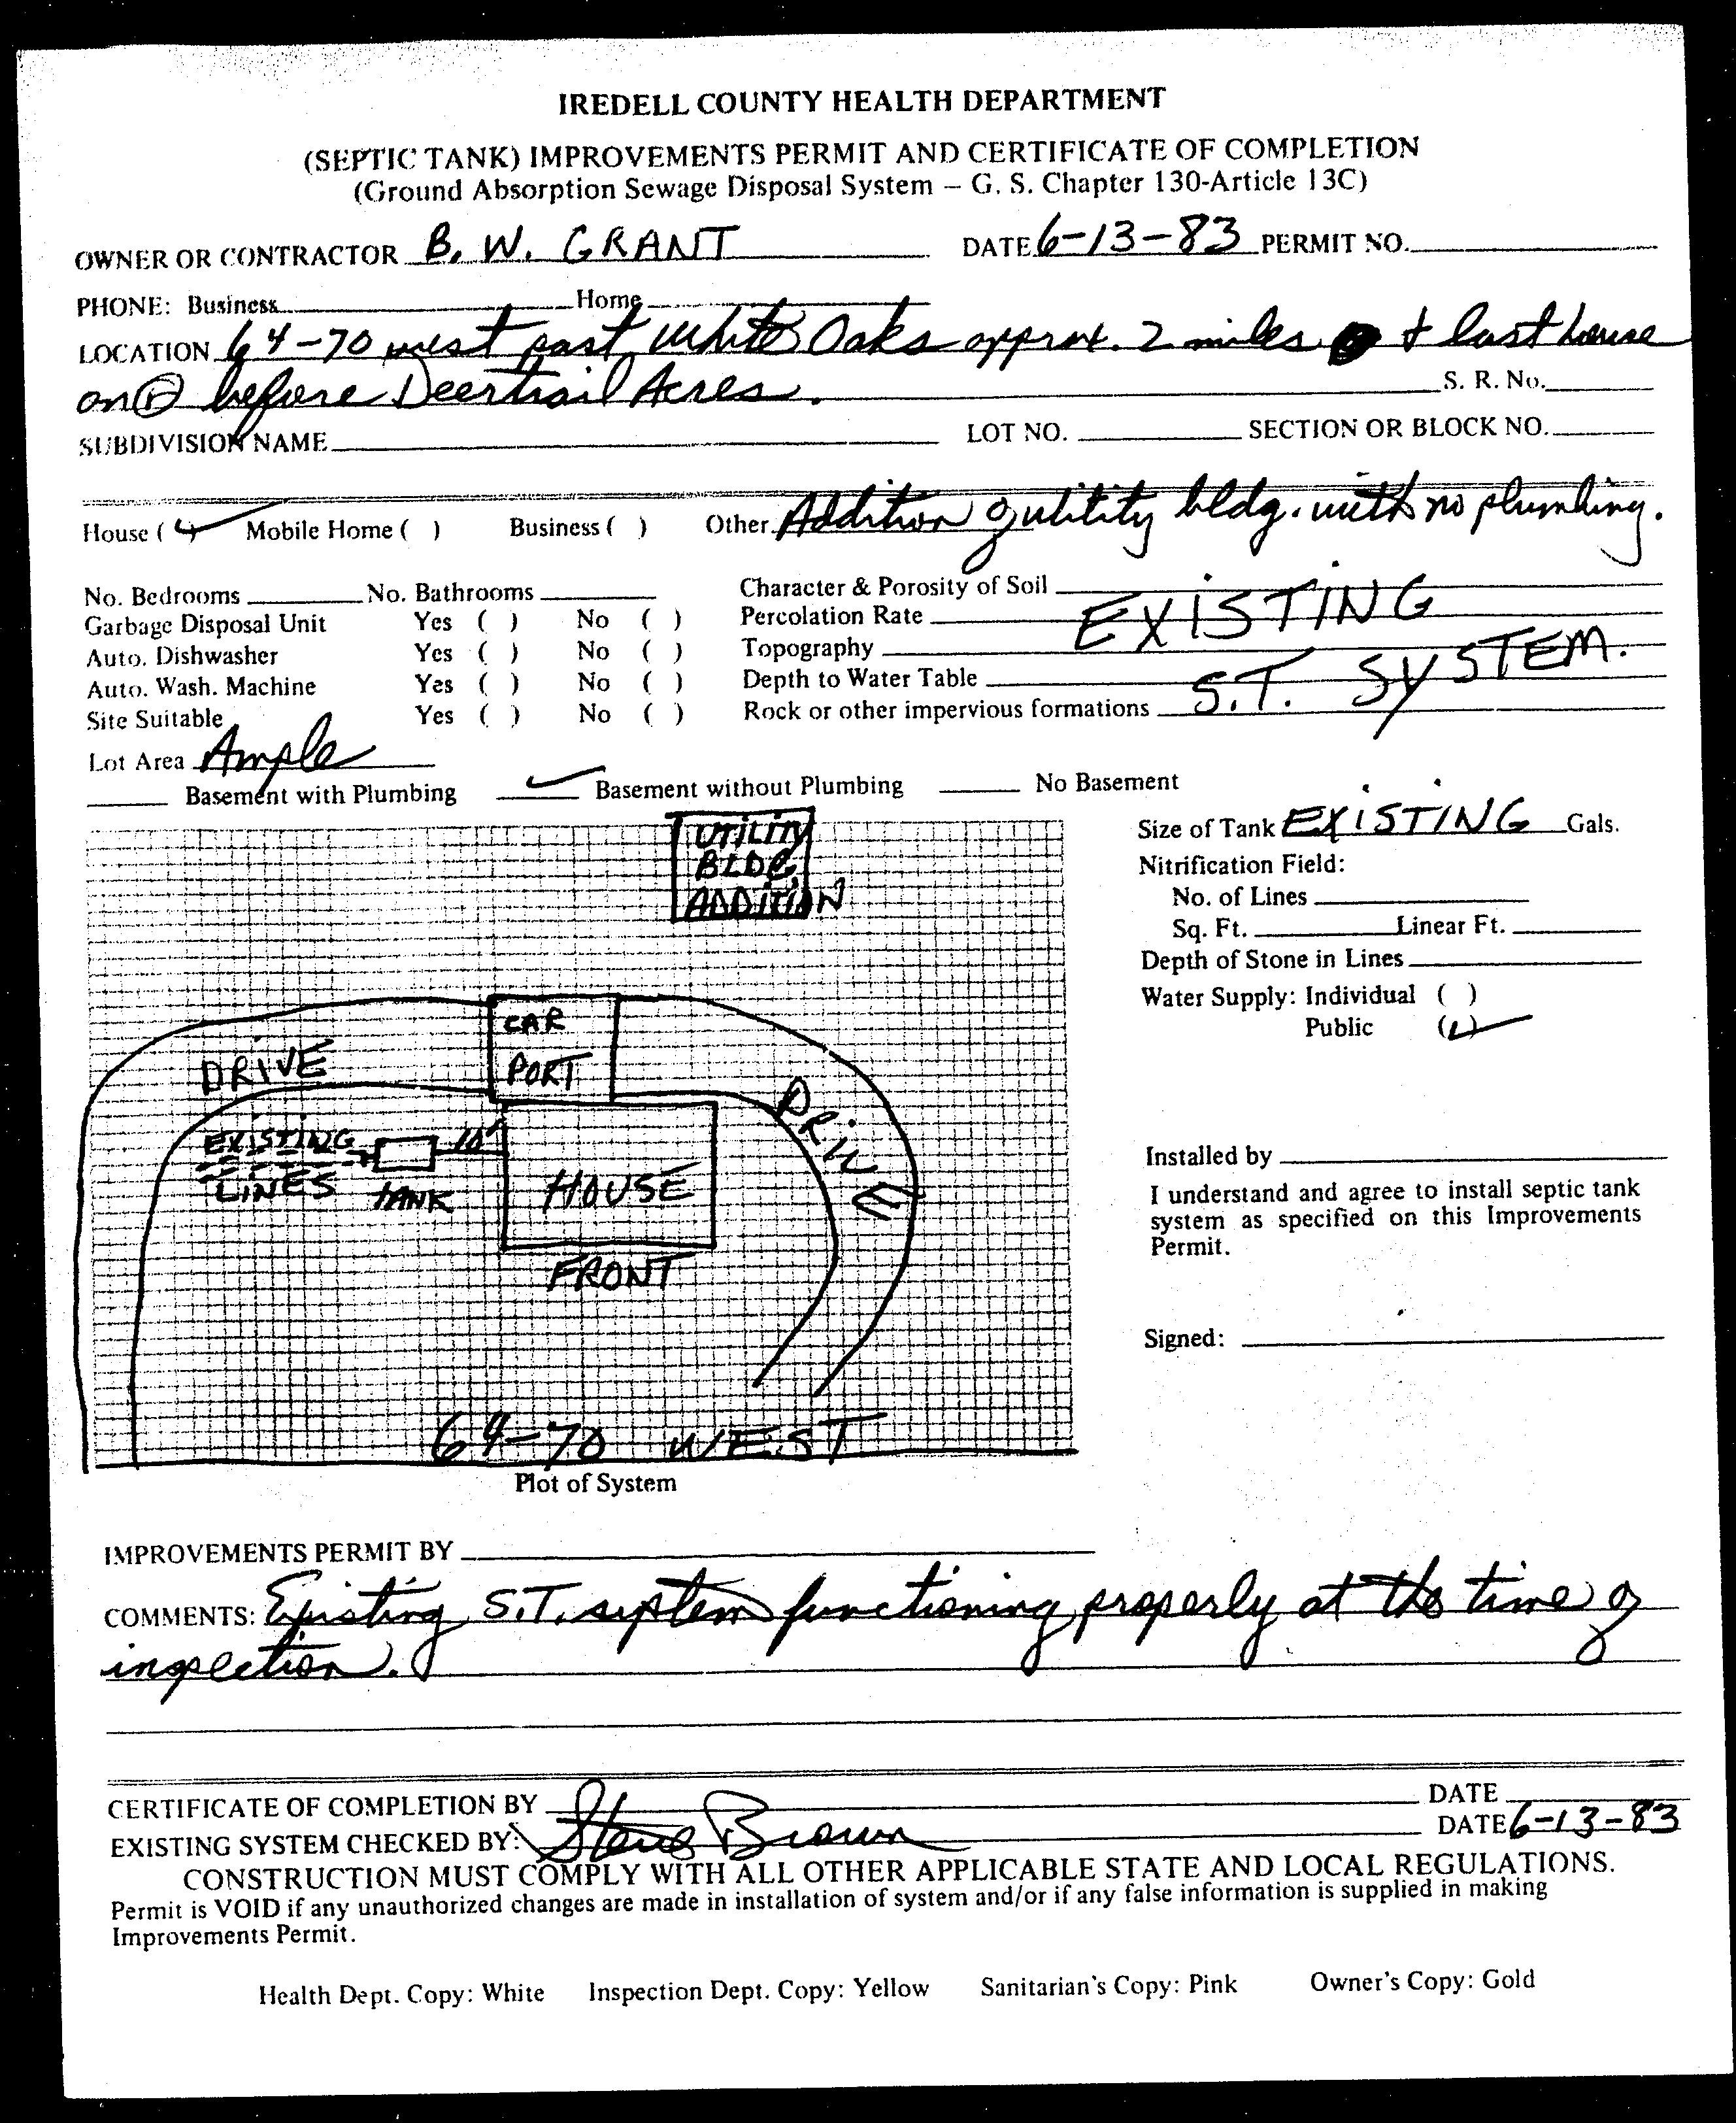 IREDELL COUNTY HEALTH DEPARTMENT
(SEPTIC TANK) IMPROVEMENTS PERMIT AND CERTIFICATE OF COMPLETION
(Ground Absorption Sewage Disposal System – G. S. Chapter 130-Article 13C)
OWNER OR CONTRACTOR B. W. GRANT DATE 6-13-83 PERMIT NO.
PHONE: Business Home
LOCATION 64-70 west past White Oaks approx. 2 miles & last house
on R before Deertrail Acres. S. R. No.
SUBDIVISION NAME LOT NO. SECTION OR BLOCK NO.
House (✓) Mobile Home ( ) Business ( ) Other Addition of utility bldg. with no plumbing.
No. Bedrooms No. Bathrooms Character & Porosity of Soil
Garbage Disposal Unit Yes ( ) No ( ) Percolation Rate EXISTING
Auto. Dishwasher Yes ( ) No ( ) Topography
Auto. Wash. Machine Yes ( ) No ( ) Depth to Water Table S.T. SYSTEM.
Site Suitable Yes ( ) No ( ) Rock or other impervious formations
Lot Area Ample
Basement with Plumbing ✓ Basement without Plumbing No Basement
UTILITY
BLDG.
ADDITION
CAR
PORT
DRIVE
DRIVE
EXISTING
LINES
TANK
10'
HOUSE
FRONT
64-70 WEST
Plot of System
Size of Tank EXISTING Gals.
Nitrification Field:
No. of Lines
Sq. Ft. Linear Ft.
Depth of Stone in Lines
Water Supply: Individual ( )
Public (✓)
Installed by
I understand and agree to install septic tank
system as specified on this Improvements
Permit.
Signed:
IMPROVEMENTS PERMIT BY
COMMENTS: Existing S.T. system functioning properly at the time of
inspection.
CERTIFICATE OF COMPLETION BY DATE
EXISTING SYSTEM CHECKED BY: Steve Brown DATE 6-13-83
CONSTRUCTION MUST COMPLY WITH ALL OTHER APPLICABLE STATE AND LOCAL REGULATIONS.
Permit is VOID if any unauthorized changes are made in installation of system and/or if any false information is supplied in making
Improvements Permit.
Health Dept. Copy: White Inspection Dept. Copy: Yellow Sanitarian's Copy: Pink Owner's Copy: Gold